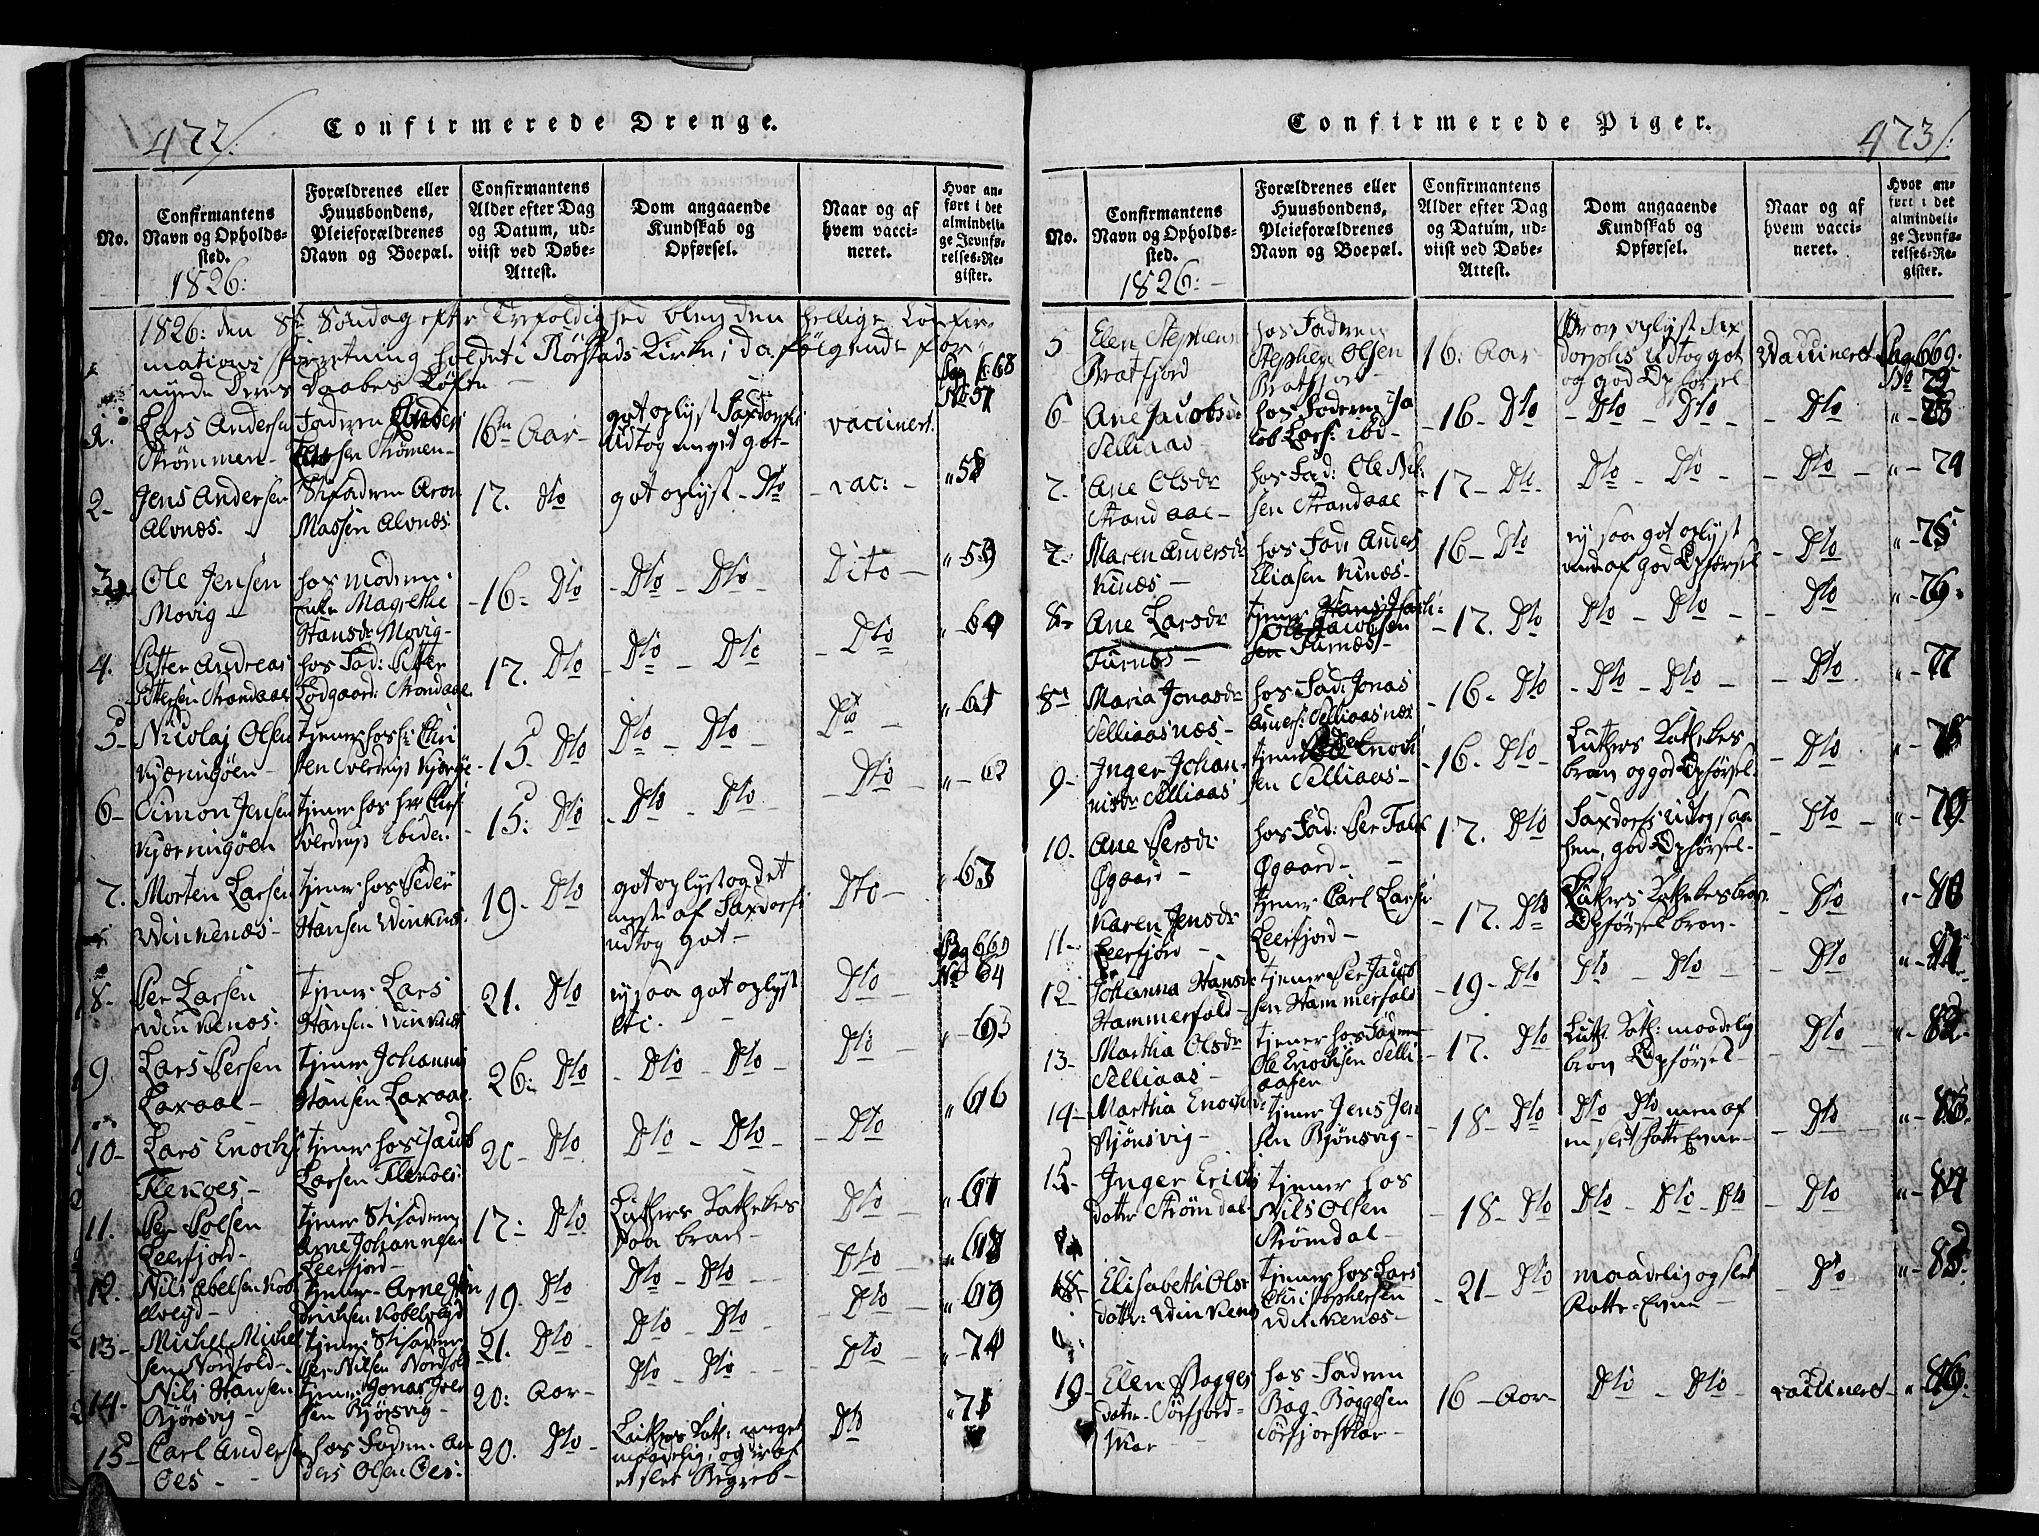 472/:
Confirmerede Drenge.
No.
Confirmantens
Navn og Opholds-
sted.
Forældrenes eller
Huusbondens,
Pleieforældrenes
Navn og Boepæl.
Confirmantens
Alder efter Dag
og Datum, ud-
viist ved Døbe-
Attest.
Dom angaaende
Kundskab og
Opførsel.
Naar og af
hvem vacci-
neret.
Hvor an-
ført i det
almindeli-
ge Jevnfø-
relses-Re-
gister.
1826:
1826: den 8de Søndag efter Trefoldighed blev den hellige Confir-
mations forretning holdet i Rørstads Kirke; da følgende for-
nyede Deres Daabes Løfte
Pag 668
No 57
1. Lars Andersen
Strømmen-
Faderen Anders
Larsen Strømen-
16 Aar-
got oplyst Saxdorphs
Udtog meget got-
vaccinert
2- Jens Andersen
Alvnæs.
Stifaderen Aron
Massen Alvnæs.
17. Dto
got oplyst - Dto
- vac: -
" 58
3. Ole Jensen
Movig -
hos moderen
Enke Magrethe
Hansdr Movig-
-16- Dto
-Dto - Dto -
Dito -
" 59
4. Pitter Andreas
Pittersen Strandaae
hos Fad: Pitter
Lødgaard: Strandaae.
17. Dto
Dto - Dto
- Dto
"-60
5- Nicolaj Olsen
Kjæringøen-
tjener hos Hr: Chri
sten Sverdrup Kjærigø
-15- Dto
Dto - Dto -
Dto -
"-61
6- Simon Jensen
Kjæringøen
tjener hos Hr Chr:
Sverdrup Ibiden.
-15: Dto
-Dto - Dto -
-Dto -
"- 62
7. Morten Larsen
Winkenæs-
tjener hos Peder
Hansen Winkenæs.
19- Dto
got oplyst og det
meste af Saxdorfs
udtog got-
Dto-
" 63
8- Per Larsen
Winkenæs.
tjener Lars
Hansen Winkenæs
21. Dto
ej saa got oplyst
etc. -
Dto -
Pag 669
No 64
9. Lars Persen
Laxaae-
tjener Johannes
Hansen Laxaae-
26: Dto
-Dto - Dto -
Dto -
"-65
10- Lars Enochs:
Flenæs-
tjener hos Jacob
Larsen Flenæs-
20- Dto
Dto - Dto -
-Dto
" 66
11. Per Polsen
Leerfjord-
tjener Stifaderen
Arne Johannesen
Leerfjord-
17- Dto
Luthers Kathekes
saa brav-
Dto -
" 67
12. Nils Abelsen Kob
belvejd-
tjener- Arne Hen
drichsen Kobbelvejd
19. Dto
Dto - Dto -
Dto -
" 68
13- Michel Michel
sen Nordfold-
tjener Stifaderen
Per Nilsen Nordfold
21. Dto -
Dto - Dto -
- Dto -
" 69
14- Nils Hansen
Bjørsvig-
tjener Jonas Joen
sen Bjørsvig-
20: Aar-
Dto - Dto -
- Dto -
"-70
15- Carl Andersen
Oes-
hos Faderen An
ders Olsen Oes:
20. Dto -
Luthers Kath: meget
maadelig, og er af
et slet Begreb-
Dto
"71
473/:
Confirmerede Piger.
No.
Confirmantens
Navn og Opholds-
sted.
Forældrenes eller
Huusbondens,
Pleieforældrenes
Navn og Boepæl.
Confirmantens
Alder efter Dag
og Datum, ud-
viist ved Døbe-
Attest.
Dom angaaende
Kundskab og
Opførsel.
Naar og af
hvem vacci-
neret.
Hvor an-
ført i det
almindeli-
ge Jevnfø-
relses-Re-
gister.
1826: -
5 Elen Stephens
Bratfjord
hos Faderen
Stephen Olsen
Bratfjord-
16: Aar-
Brav oplyst Sax
dorphs Udtog got
og god Opførsel
Vaccineret
Pag 669.
No 72
6- Ane Jacobsdr
Selliaas-
hos Faderen Ja
cob Lars: ibd-
-16- Dto
- Dto - Dto -
- Dto
"- 73
7. Ane Olsdr
Strandaae-
hos Fad: Ole Nil:
sen Strandaae
-17- Dto-
Dto - Dto -
- Dto -
"- 74
7. Maren Andersdr
Kinæs-
hos Fad: Anders
Eliasen Kinæs-
16- Dto
ej saa got oplyst
men af god Opførsel
- Dto
"-75
8- Ane Larsdr
Furnæs-
tjener
Ole Jacobsen
Furnæs-
-17. Dto
Dto - Dto -
- Dto
"-76.
8- Maria Jonasdr
Selliaasnæs-
hos Fad: Jonas
Anders: Selliaasnæs
-16- Dto
- Dto - Dto -
- Dto
"-77
9- Inger Johan-
nisdr Selliaas
tjener Enoch
sen Selliaas-
-16- Dto-
Luthers Kathekes
brav og god Opførsel.
- Dto
"- 78
10. Ane Persdr
Øgaard -
hos Fad: Per Falch
Øgaard- -
17. Dto
Saxdorfs Udtog saa
hen, god Opførsel-
- Dto -
"- 79.
11- Karen Jensdr
Leerfjord -
tjener Carl Larsen
Leerfjord-
-17. Dto
Luthers Kathekes brav
Opførsel brav-
- Dto
" 80
12- Johanna Hansdr
Hammerfald-
tjener Per Jacob
sen Hammerfald
-19- Dto
Dto - Dto -
- Dto
"-81
13- Martha Olsdr
Selliaas-
tjener hos Faderen
Ole Enochsen Selli
aasen
-17. Dto
Luth: Kath: maadelig
brav Opførsel-
- Dto -
"- 82-
14- Martha Enochsdr
Bjønsvig-
tjener Jens Jen
sen Bjønsvig-
-18- Dto
Dto Dto men af
en slet fatte Evne-
- Dto -
"- 83.
15- Inger Erichs
datter Strømdal-
tjener hos
Nils Olsen
Strømdal-
- 18- Dto
Dto - Dto - Dto
- Dto
"- 84
18- Elisabeth Ols
datter: Winkenæs
tjener hos Lars
Christophersen
Winkenæs-
- 21- Dto
maadelig og slet
Fatte-Evne -
- Dto
"- 85.
19- Elen Bagges
datter- Sørfjord-
skar
hos Faderen
Bag Baggesen
Sørfjorskar-
16 - Aar-
Dto - Dto -
vaccineret-
" 86.